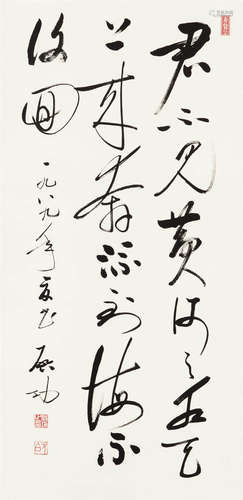 君不见黄河之水天
上来奔流到海不
复回
一九八九年夏书 启功